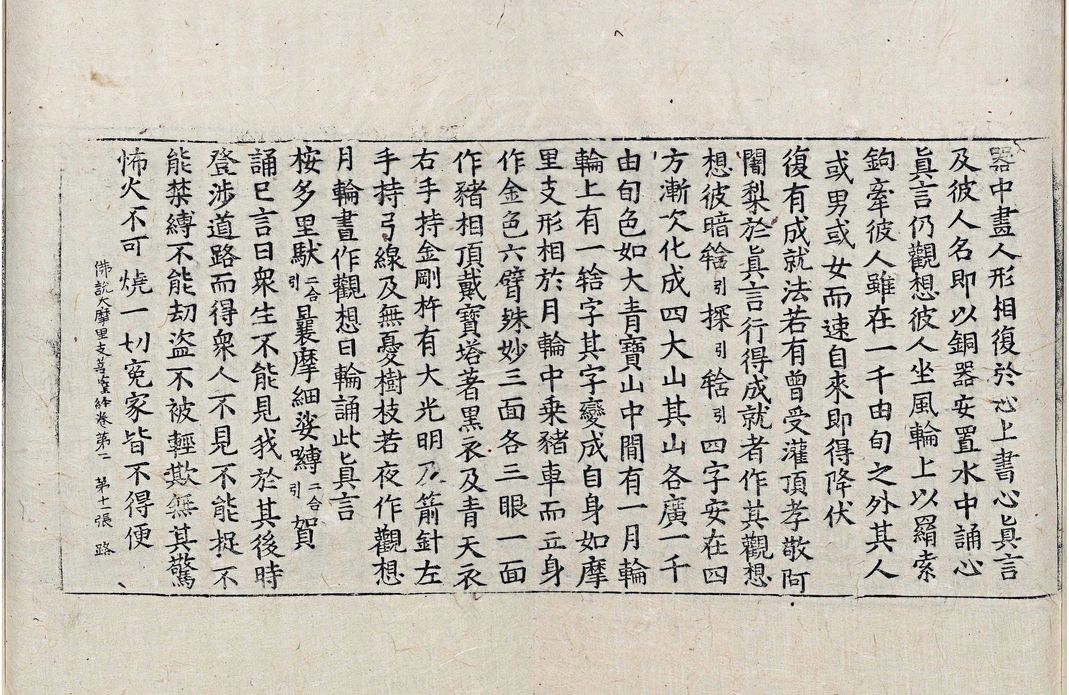 器中畫人形相復於心上書心眞言
及彼人名即以銅器安置水中誦心
眞言仍觀想彼人坐風輪上以羂索
鉤牽彼人雖在一千由旬之外其人
或男或女而速自來即得降伏
復有成就法若有曾受灌頂孝敬阿
闍梨於眞言行得成就者作其觀想
想彼暗𤚥引探引𤚥引四字安在四
方漸次化成四大山其山各廣一千
由旬色如大青寶山中閒有一月輪
輪上有一𤚥字其字變成自身如摩
里支形相於月輪中乗豬車而立身
作金色六臂殊妙三面各三眼一面
作豬相頂戴寶塔著黒衣及青天衣
右手持金剛杵有大光明乃箭針左
手持弓線及無憂樹枝若夜作觀想
月輪晝作觀想日輪誦此眞言
桉多里馱引二合曩摩細娑嚩引二合賀
誦已言曰衆生不能見我於其後時
登涉道路而得衆人不見不能捉不
能禁縛不能劫盜不被輕欺無其驚
怖火不可燒一切冤家皆不得便
佛説大摩里支菩薩經卷第二 第十一張 路